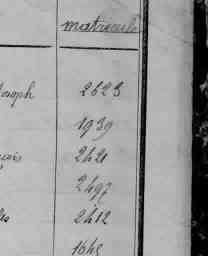 matricule
Joseph 2623
1939
2421
2497
2412
1645